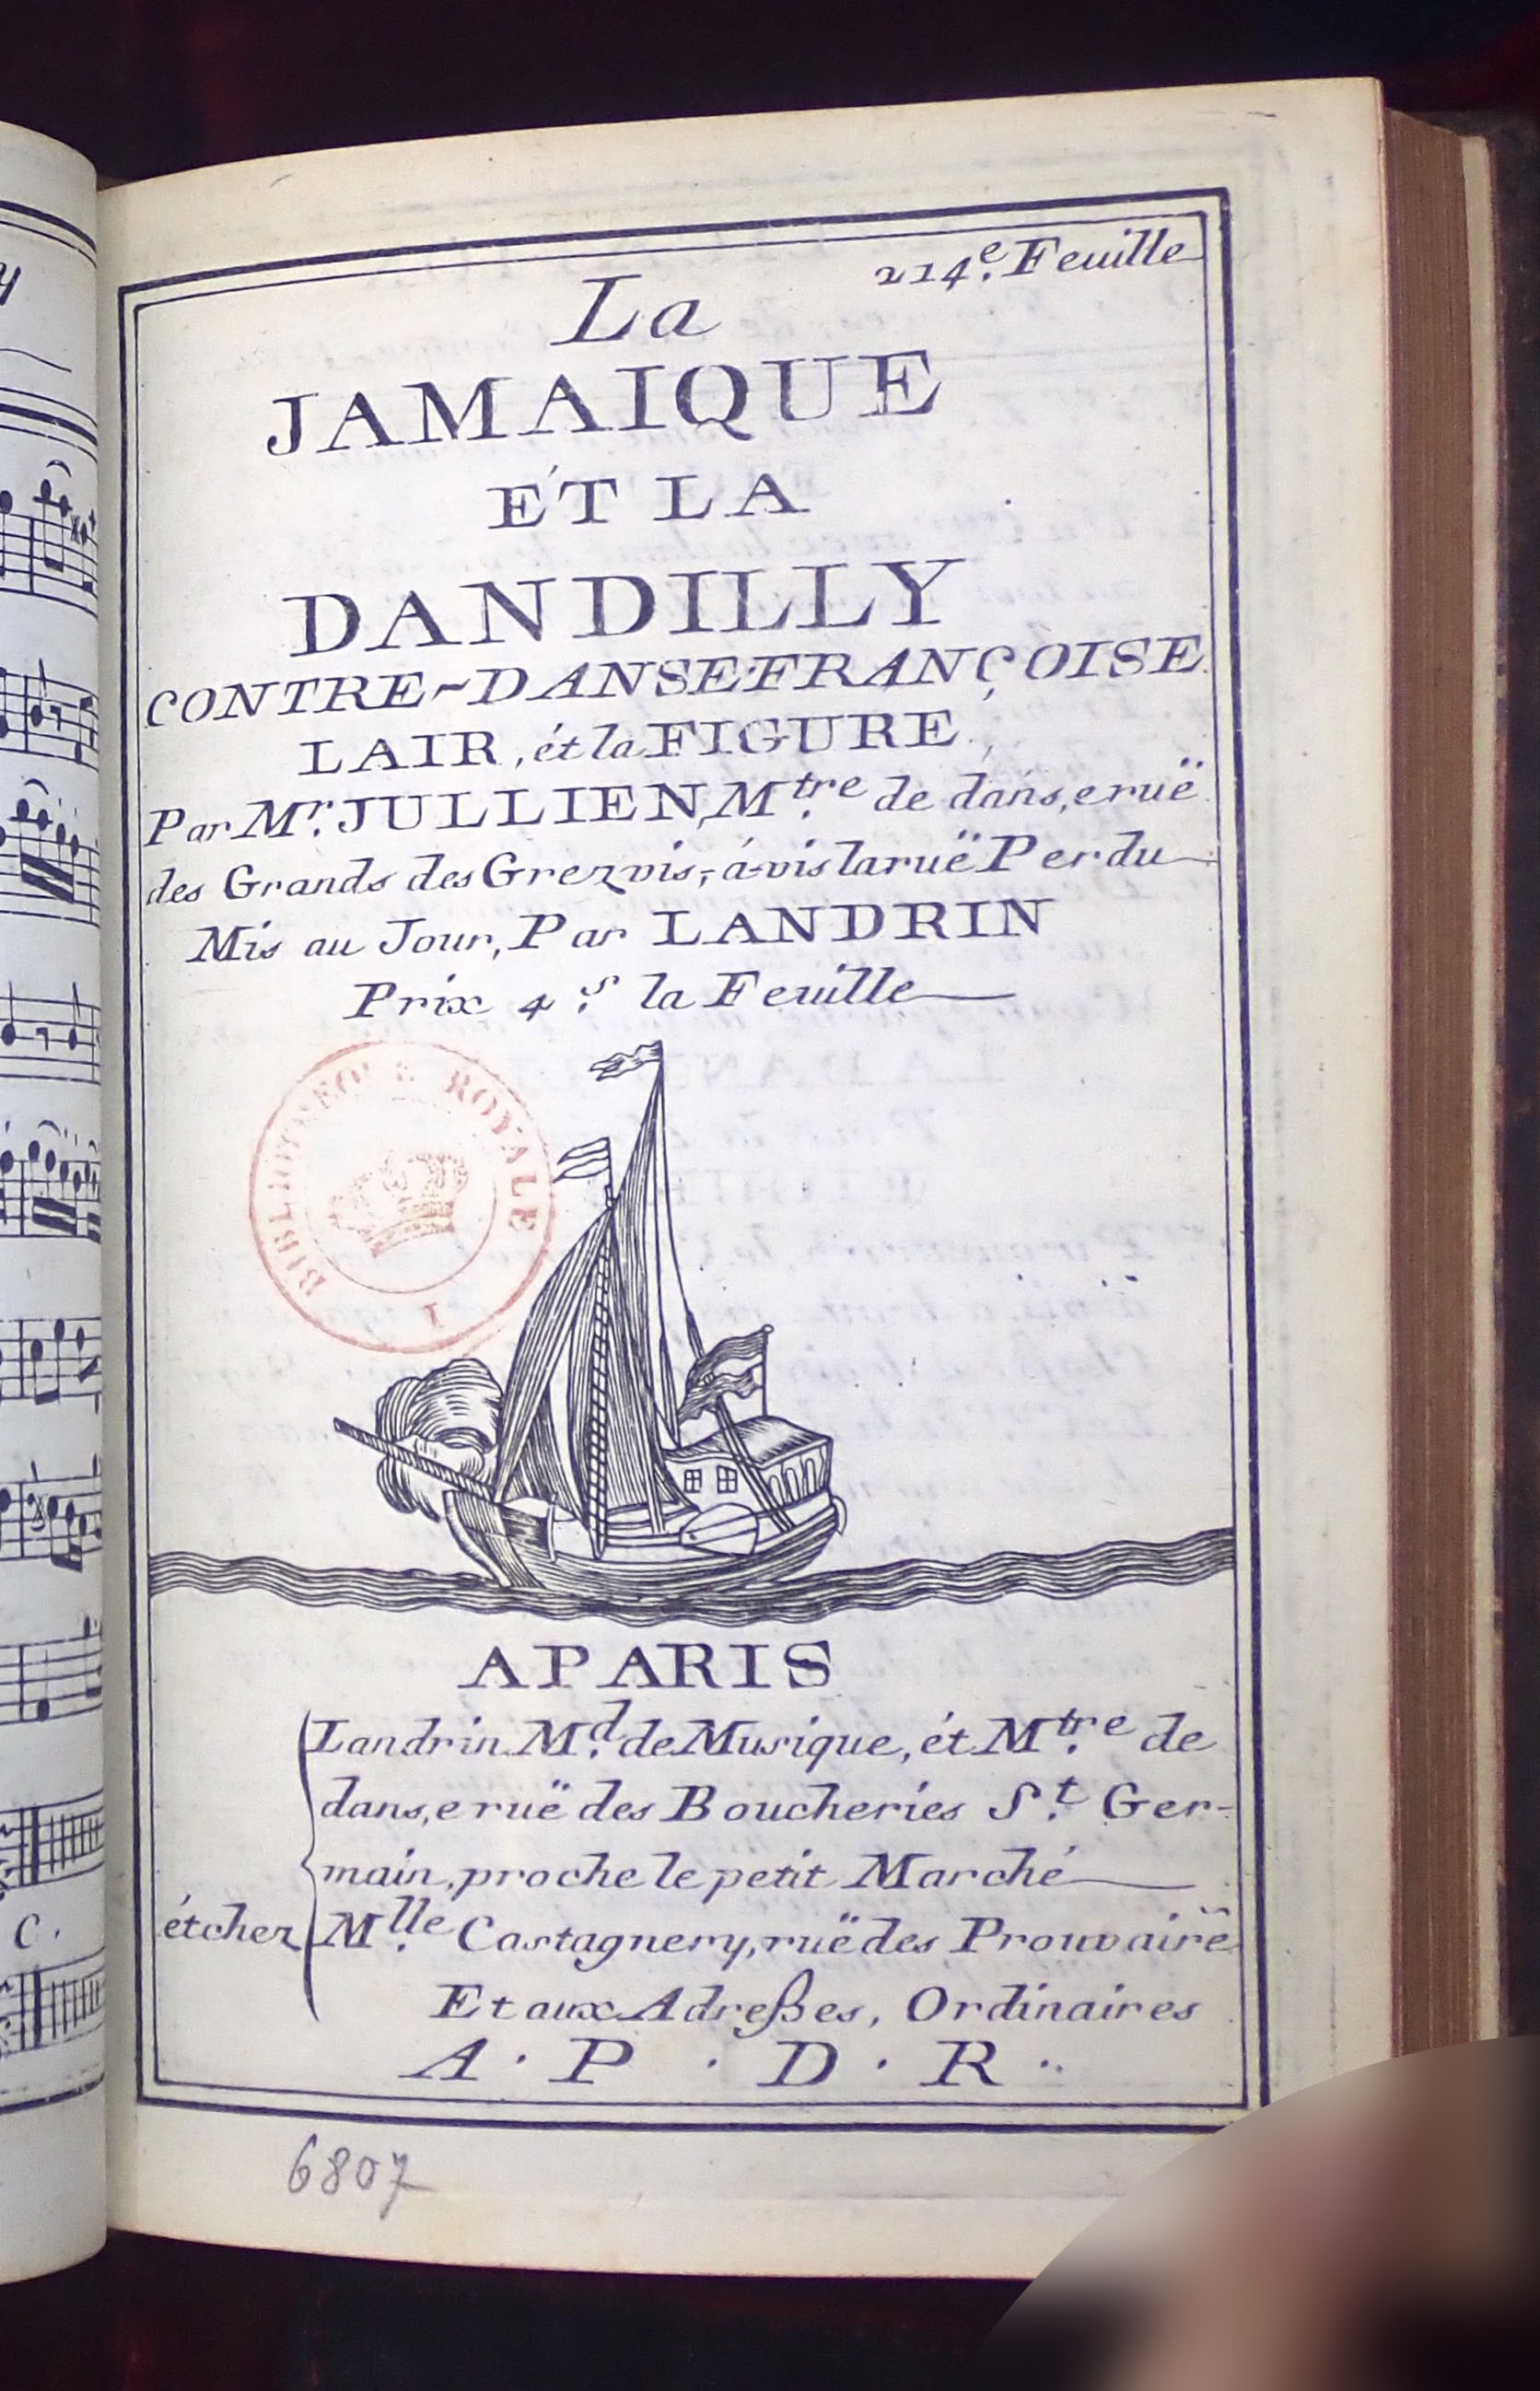 214e. Feuille
La
JAMAIQUE
ÉT LA
DANDILLY
CONTRE-DANSE FRANÇOISE
LAIR, ét la FIGURE
Par Mr. JULLIEN, Mtre. de dans,e ruë
des Grands des Grez vis,-á-vis la ruë Perdu
Mis au Jour, Par LANDRIN
Prix 4.s la Feuille
BIBLIOTHEQUE ROYALE
I
A PARIS
Landrin Md. de Musique, ét Mtre. de
dans,e ruë des Boucheries St. Ger-
main, proche le petit Marché
ét chez Mlle. Castagnery, ruë des Prouvairë
Et aux Adreßes, Ordinaires
A . P . D . R ..
6807
y
C.